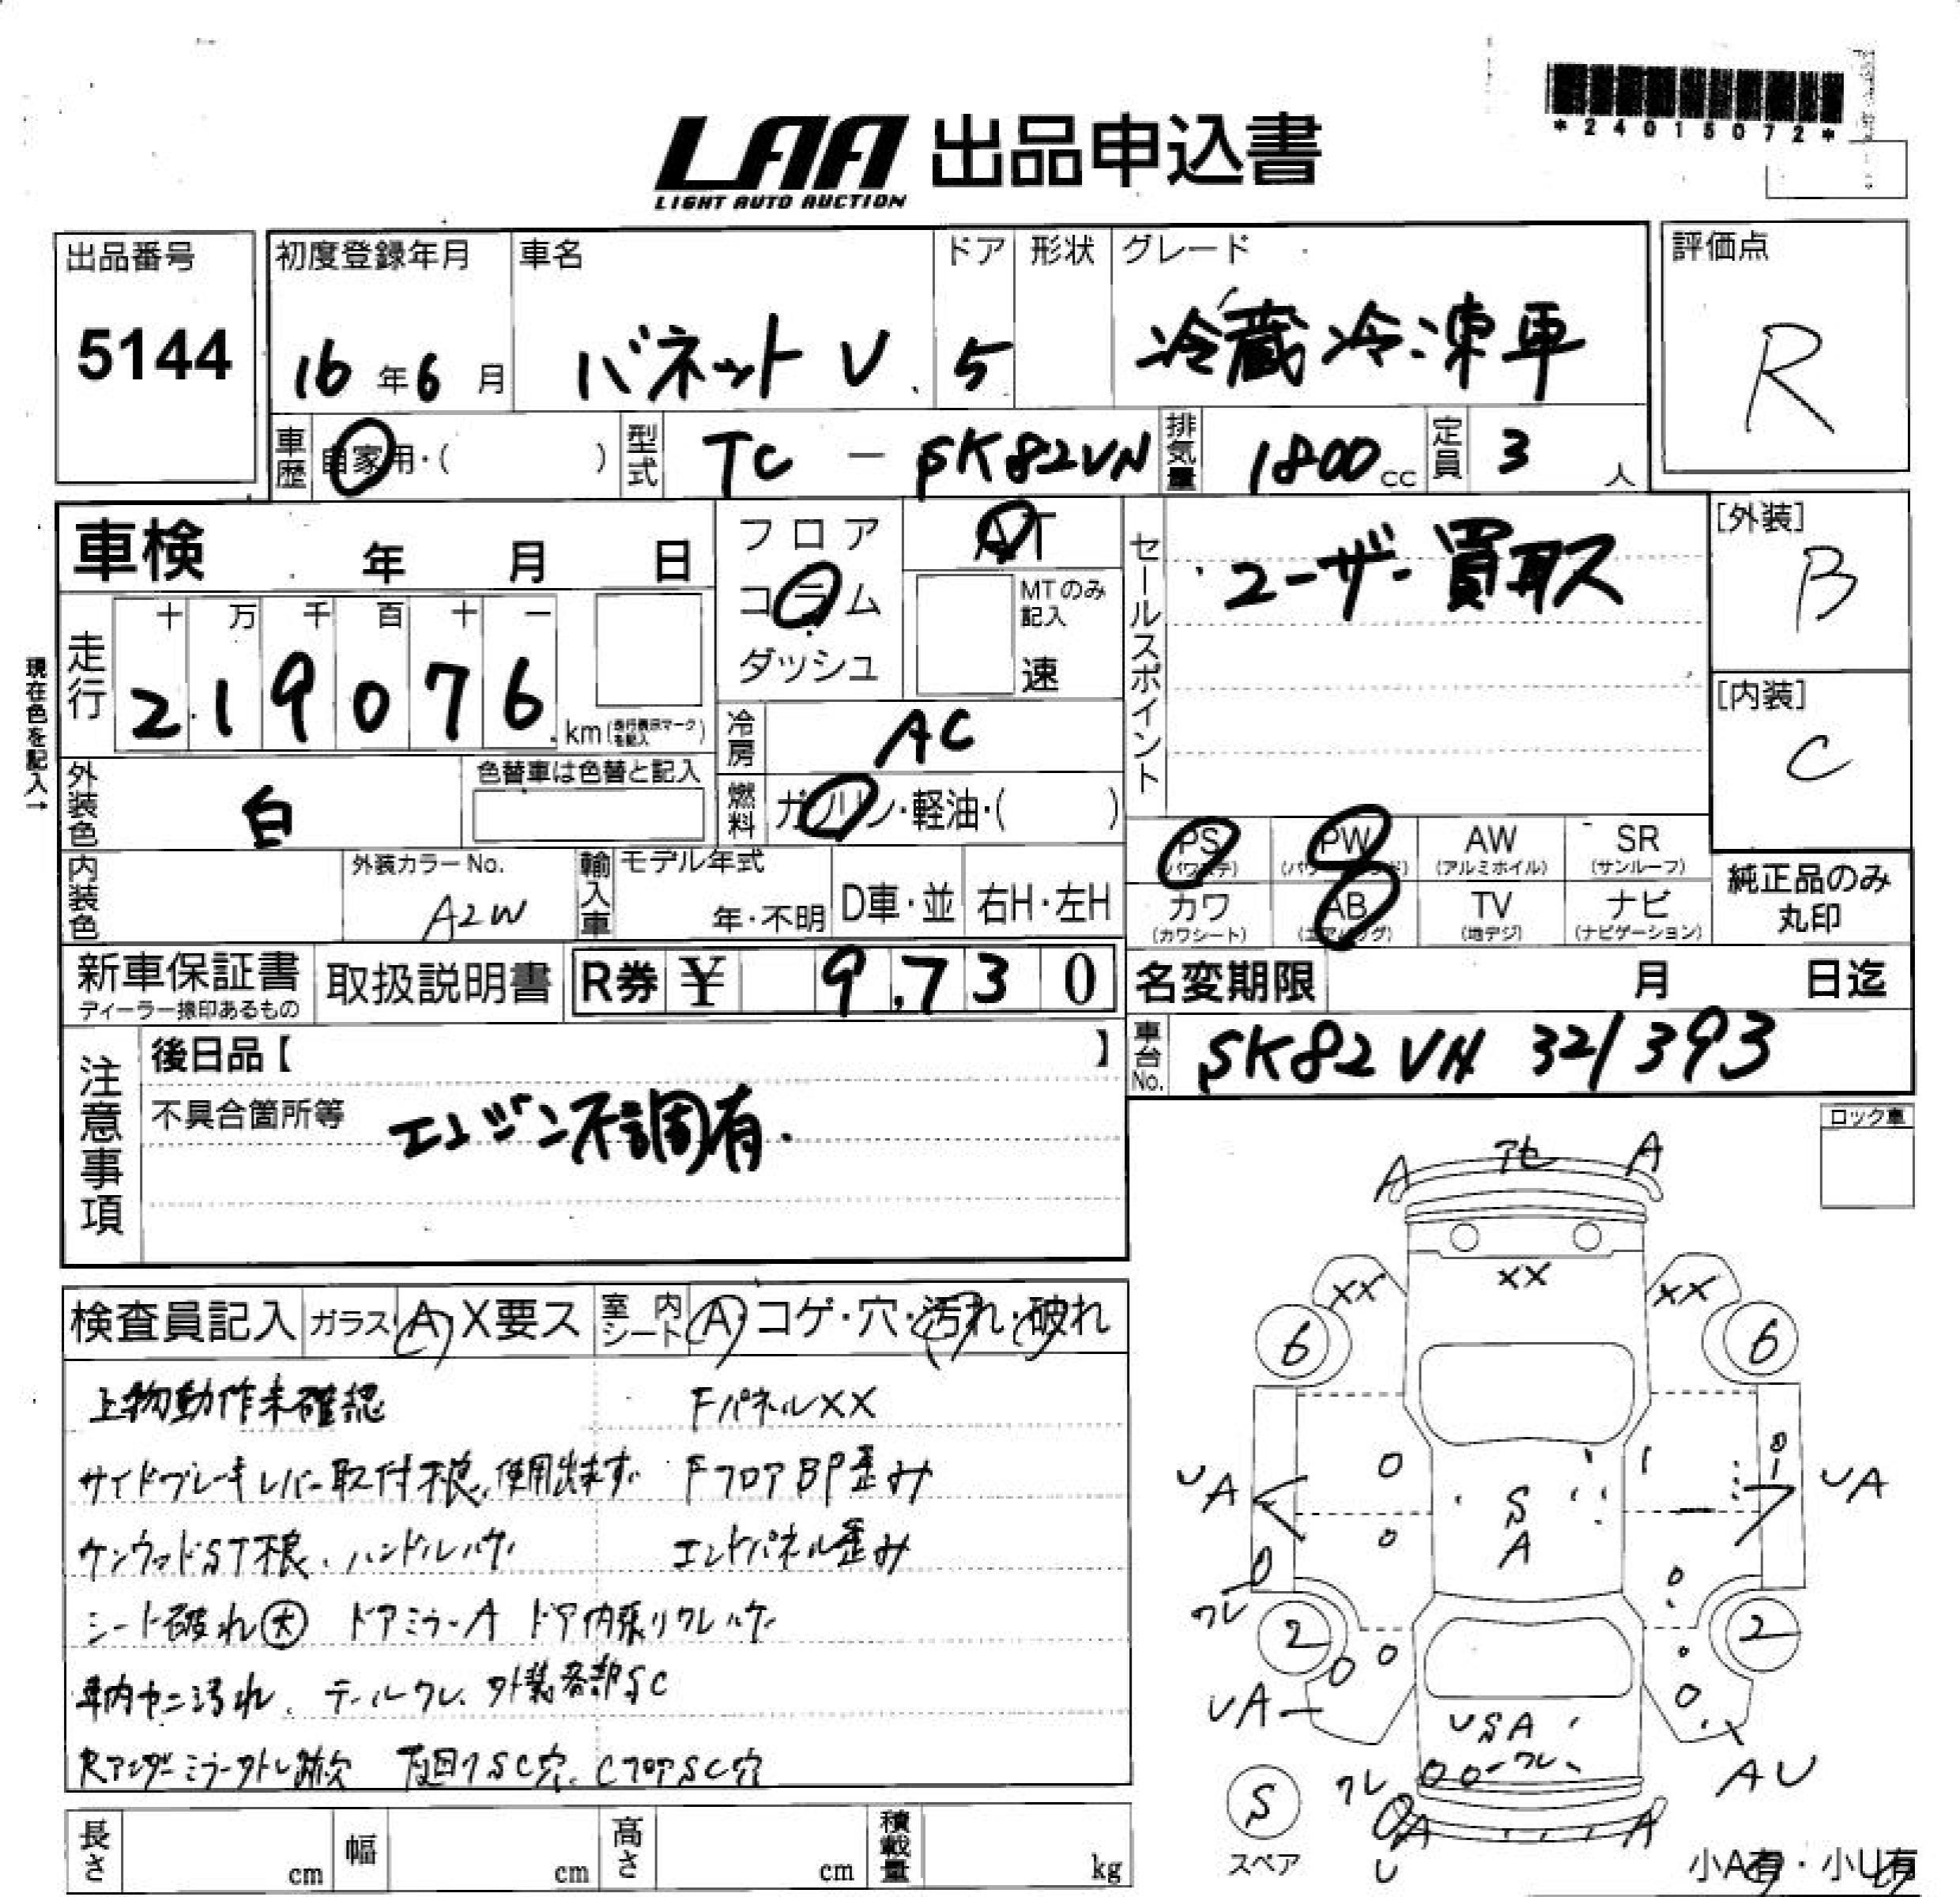 *24015072*
LAA 出品申込書
LIGHT AUTO AUCTION
出品番号
5144
初度登録年月 車名 ドア 形状 グレード
16年6月 バネットV 5 冷蔵冷凍車
評価点
R
車歴 自家用・( ) 型式 TC - SK82VN 排気量 1800cc 定員 3人
車検 年 月 日
フロア
コラム
ダッシュ
AT
MTのみ記入
速
セールスポイント
・ユーザー買取ス
[外装]
B
[内装]
C
現在色を記入→
走行 十 万 千 百 十 一
219076 km(走行表示マークを記入)
冷房 AC
燃料 ガソリン・軽油・( )
外装色 白
色替車は色替と記入
内装色
外装カラーNo.
A2W
輸入車 モデル年式
年・不明 D車・並 右H・左H
PS(パワステ) PW AW(アルミホイル) SR(サンルーフ)
カワ(カワシート) AB(エアバッグ) TV(地デジ) ナビ(ナビゲーション)
純正品のみ
丸印
新車保証書
ディーラー捺印あるもの
取扱説明書
R券 ¥ 9,730
名変期限 月 日迄
車台No. SK82VN 321393
注意事項
後日品【 】
不具合箇所等 エンジン不調有.
ロック車
検査員記入 ガラス A X要ス 室内シート A・コゲ・穴・汚れ・破れ
上物動作未確認 FパネルXX
サイドブレーキレバー取付不良、使用出来ず FフロアBP歪み
ケンウッドST不良、ハンドルハゲ エンドパネル歪み
シート破れ大 ドアミラーA ドア内張りワレハゲ
車内ヤニ汚れ、テールワレ、外装各部SC
Rアンダーミラー外レ跡穴 下回りSC穴、CフロアSC穴
長さ cm 幅 cm 高さ cm 積載量 kg
A アセ A
XX XX XX
6 6
UA S UA
A
ワレ
2 2
UA USA
ワレ ワレ AU
S A A
U
スペア
小A有・小U有